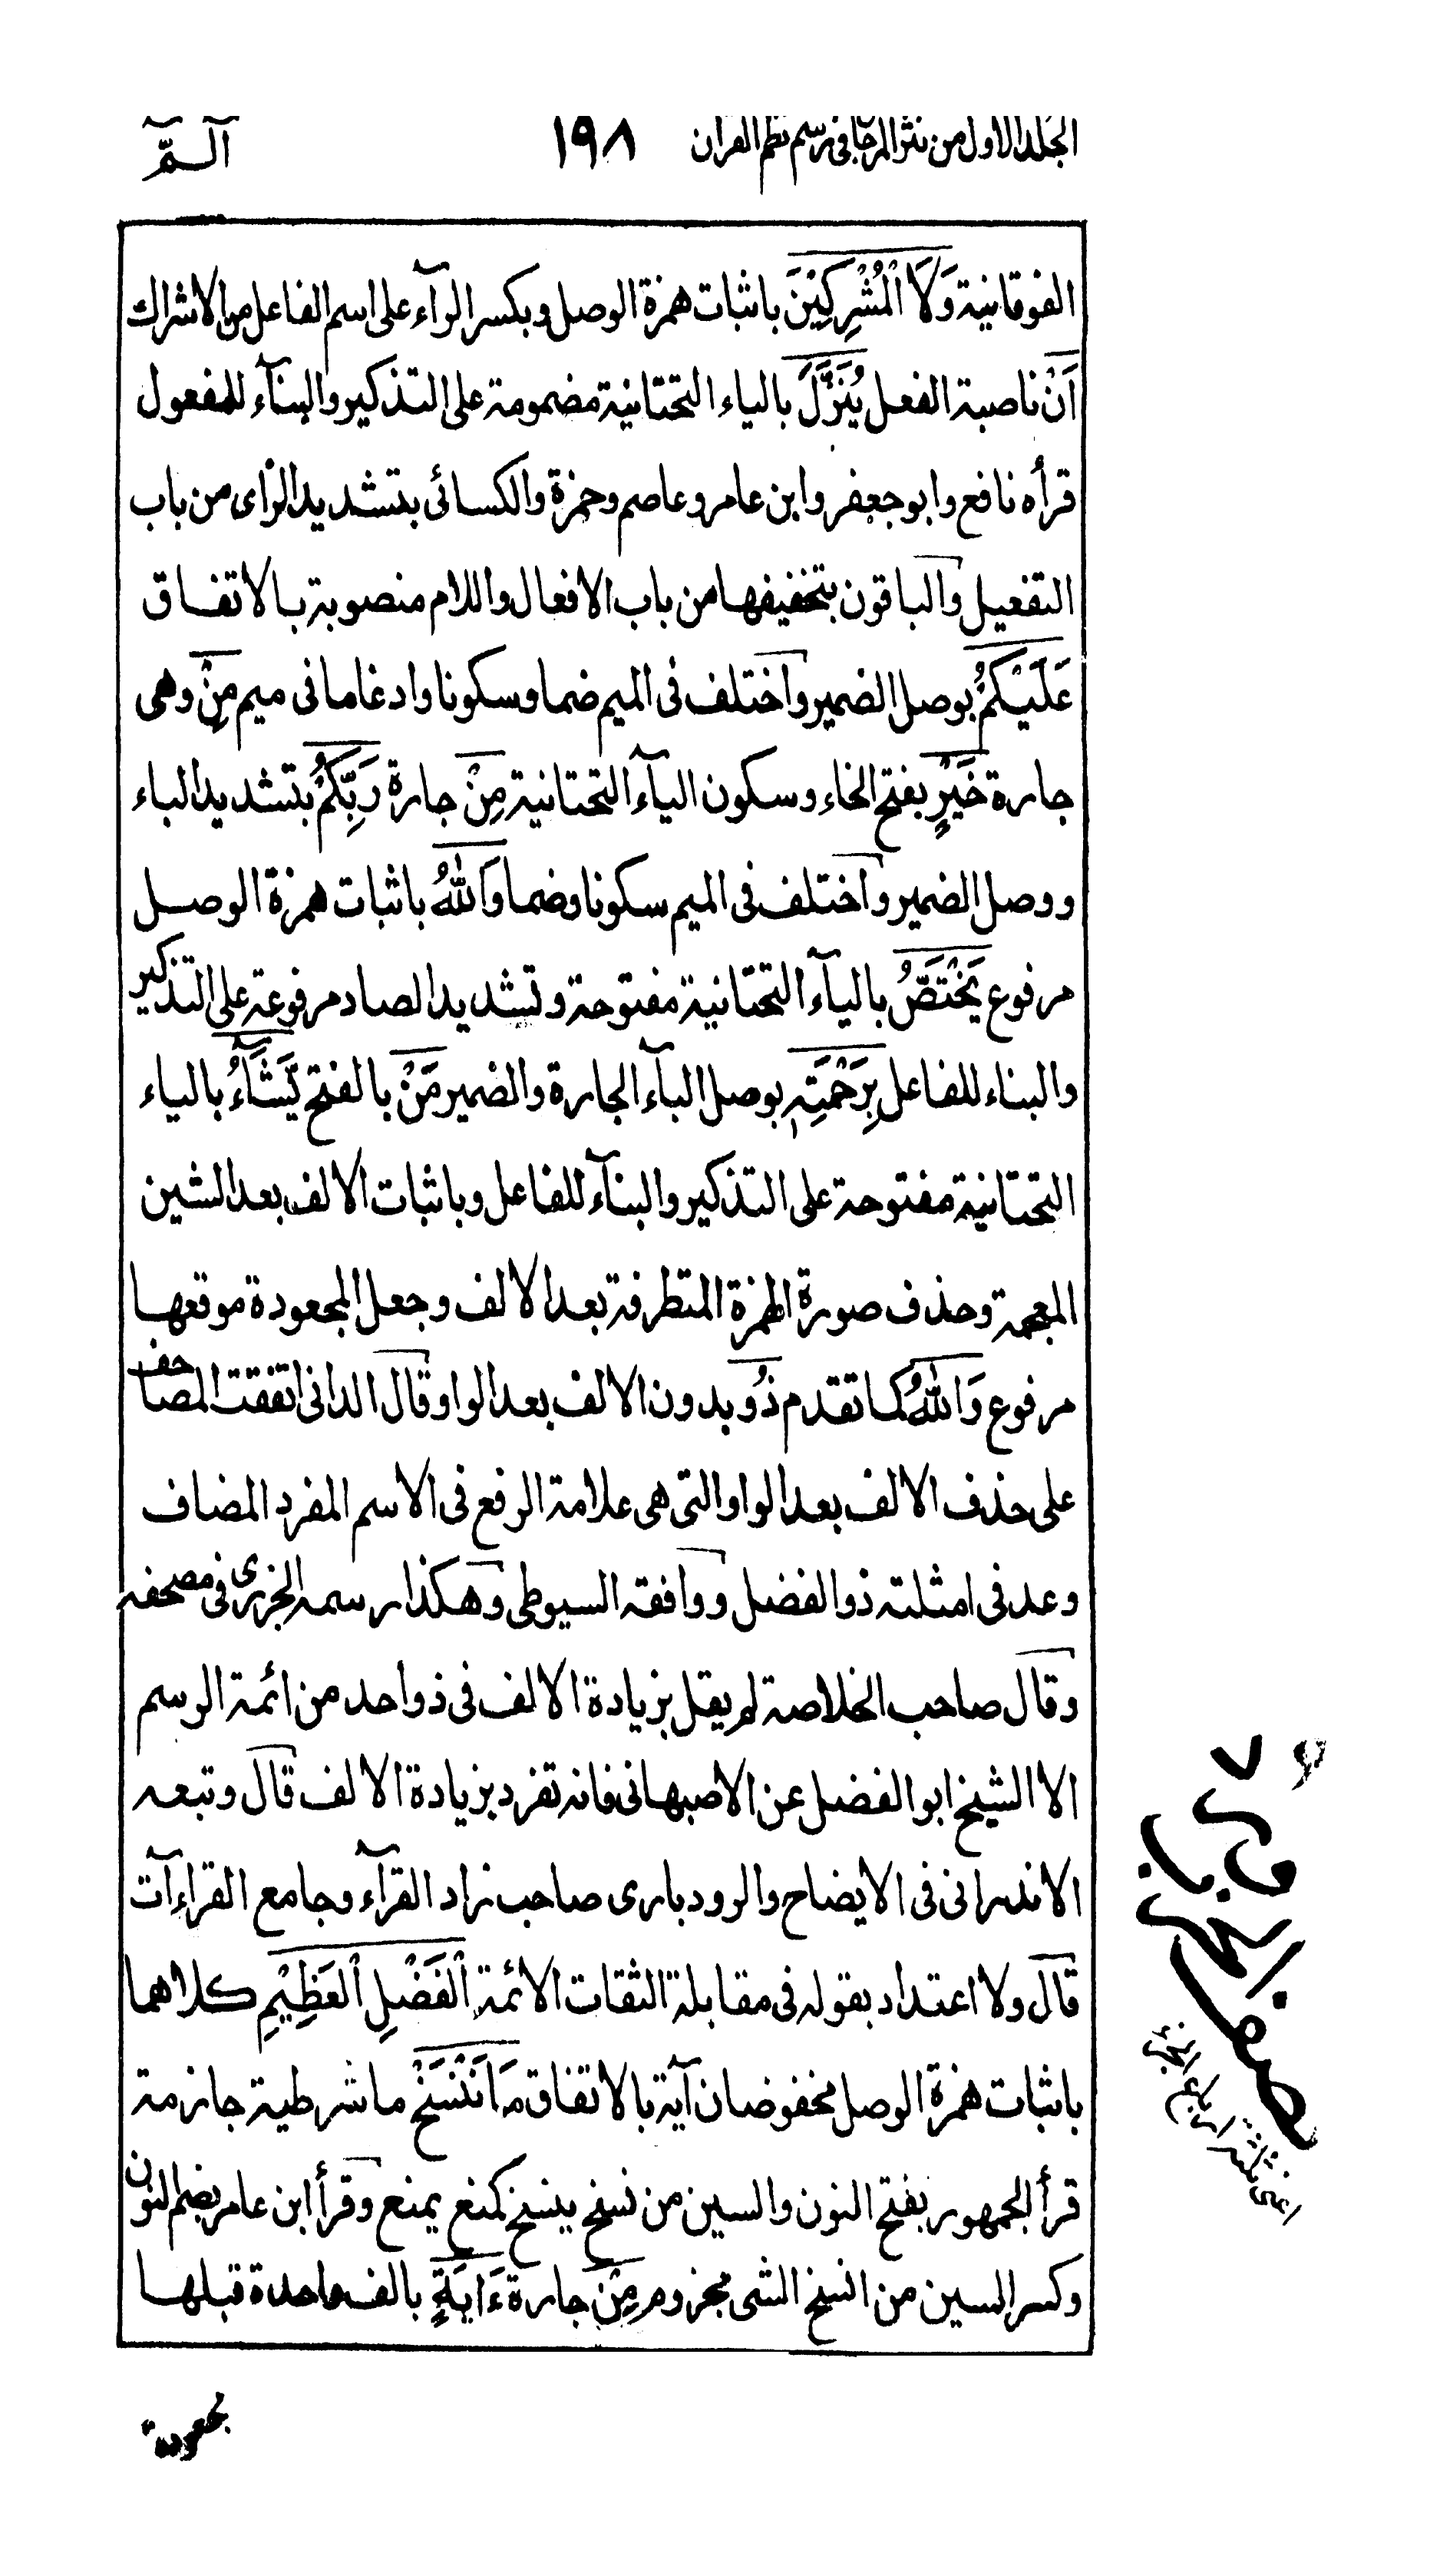 الجلد الاول من نثر المرجان فى رسم نظم القران ١٩٨ آلـمّ
الفوقانية وَلَا الْمُشْرِكِيْنَ باثبات همزة الوصل وبكسر الرآء على اسم الفاعل من الاشراك
اَنْ ناصبة الفعل يُنَزَّلَ بالياء التحتانية مضمومة على التذكير والبنآء للمفعول
قرأه نافع وابو جعفر وابن عامر وعاصم وحمزة والكسائى بتشديد الزاى من باب
التفعيل والباقون بتخفيفها من باب الافعال واللام منصوبة بالاتفاق
عَلَيْكُمْ بوصل الضمير واختلف فى الميم ضما وسكونا وادغاما فى ميم مِنْ وهى
جارة خَيْرٍ بفتح الخاء وسكون اليآء التحتانية مِنْ جارة رَبِّكُمْ بتشديد الباء
ووصل الضمير واختلف فى الميم سكونا وضما وَاللّٰهُ باثبات همزة الوصل
مرفوع يَخْتَصُّ باليآء التحتانية مفتوحة وتشديد الصاد مرفوعة على التذكير
والبناء للفاعل بِرَحْمَتِهٖ بوصل البآء الجارة والضمير مَنْ بالفتح يَّشَآءُ بالياء
التحتانية مفتوحة على التذكير والبنآء للفاعل وباثبات الالف بعد الشين
المعجمة وحذف صورة الهمزة المتطرفة بعد الالف وجعل المجعودة موقعها
مرفوع وَاللّٰهُ كما تقدم ذُو بدون الالف بعد الواو قال الدانى اتفقت المصاحف
على حذف الالف بعد الواو التى هى علامة الرفع فى الاسم المفرد المضاف
وعد فى امثلته ذو الفضل ووافقه السيوطى وهكذا رسمه الجزرى فى مصحفه
وقال صاحب الخلاصة لم يقل بزيادة الالف فى ذو احد من ائمة الرسم
الا الشيخ ابو الفضل عن الاصبهانى فانه تفرد بزيادة الالف قال وتبعه
الاندرانى فى الايضاح والرودبارى صاحب زاد القرآء وجامع القراءآت
قال ولا اعتداد بقوله فى مقابلة الثقات الائمة الْفَضْلِ الْعَظِيْمِ كلاهما
باثبات همزة الوصل مخفوضان آية بالاتفاق مَا نَنْسَخْ ما شرطية جازمة
قرأ الجمهور بفتح النون والسين من نسخ ينسخ كمنع يمنع وقرأ ابن عامر بضم النون
وكسر السين من انسخ الشى مجزوم مِنْ جارة ءَايَةٍ بالف واحدة قبلها
اعنى ثلثة ارباع الجزء
مجعودة